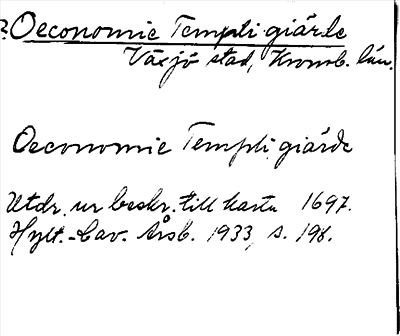 ?Oeconomie Templi giärde
Växjö stad, Kronob. län.
Oeconomie Templi giärde
Utdr. ur beskr. till karta 1697.
Hylt.-Cav. Årsb. 1933, s. 198.